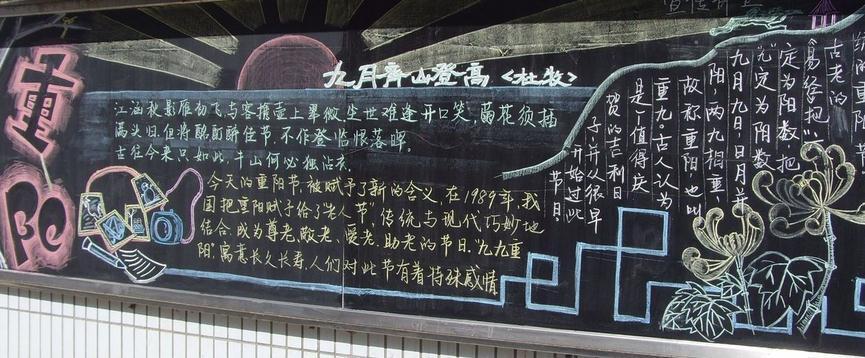 重阳
九月齐山登高<杜牧>
江涵秋影雁初飞,与客携壶上翠微.尘世难逢开口笑,菊花须插
满头归.但将酩酊酬佳节,不作登临恨落晖.
古往今来只如此,牛山何必独沾衣.
今天的重阳节,被赋予了新的含义,在1989年,我
国把重阳赋予给了"老人节",传统与现代巧妙地
结合,成为尊老,敬老,爱老,助老的节日."九九重
阳",寓意长久长寿,人们对此节有着特殊感情
古老的
《易经把
定为阴数,把
"九"定为阳数
九月九日,日月并
阳,两九相重,
故称重阳,也叫
重九。古人认为
是个值得庆
贺的吉利日
子,并从很早
开始过此
节日。